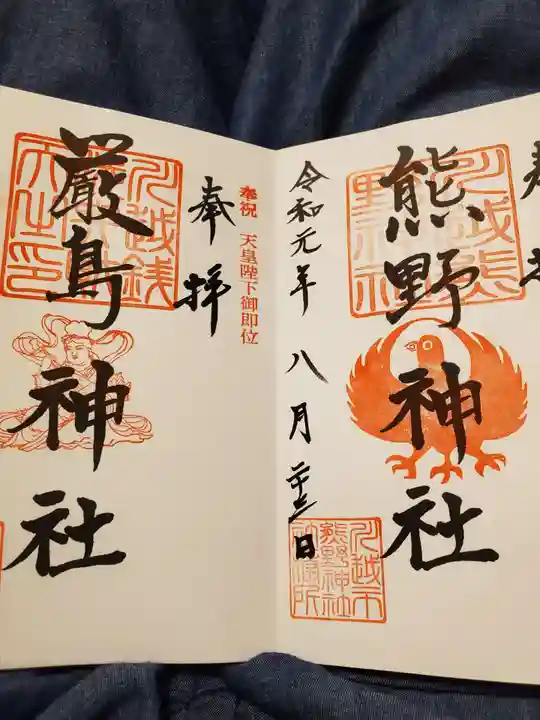 奉拝
熊野神社
川越熊野神社
令和元年 八月 廿三日
川越市
熊野神社
社務所
奉祝 天皇陛下御即位
奉拝
厳島神社